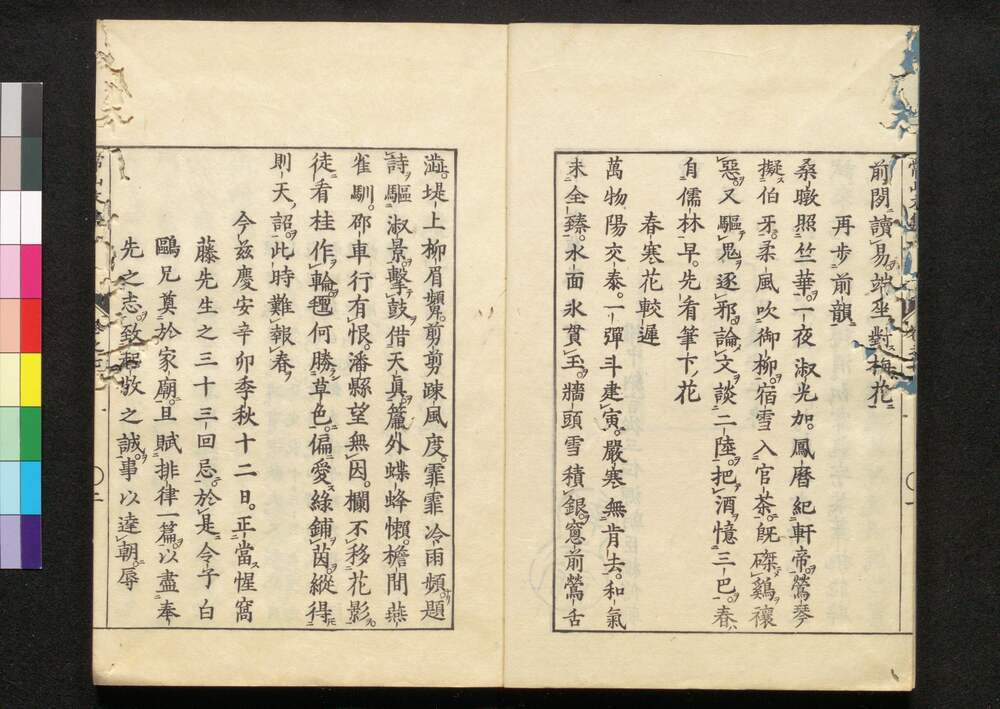 前閲讀易端坐對梅花
再步前韻
桑暾照竺華一夜淑光加鳳曆紀軒帝鶯琴
擬伯牙柔風吹御柳宿雪入官茶既磔鷄禳
惡又驅鬼逐邪論文談二陸把酒憶三巴春
自儒林早先看筆下花
春寒花較遲
萬物陽交泰一彈斗建寅嚴寒無肯去和氣
未全臻水面氷貫玉牆頭雪積銀窓前鶯舌
澁堤上柳眉顰剪剪疎風度霏霏冷雨頻題
詩驅淑景擊鼓借天眞簾外蝶蜂懶檐間燕
雀馴邵車行有恨潘縣望無因欄不移花影
徒看桂作輪氊何勝草色偏愛綠鋪茵縱得
則天詔此時難報春
今茲慶安辛卯季秋十二日正當惺窩
藤先生之三十三回忌於是令子白
鷗兄奠於家廟且賦排律一篇以盡奉
先之志致起敬之誠事以達朝辱